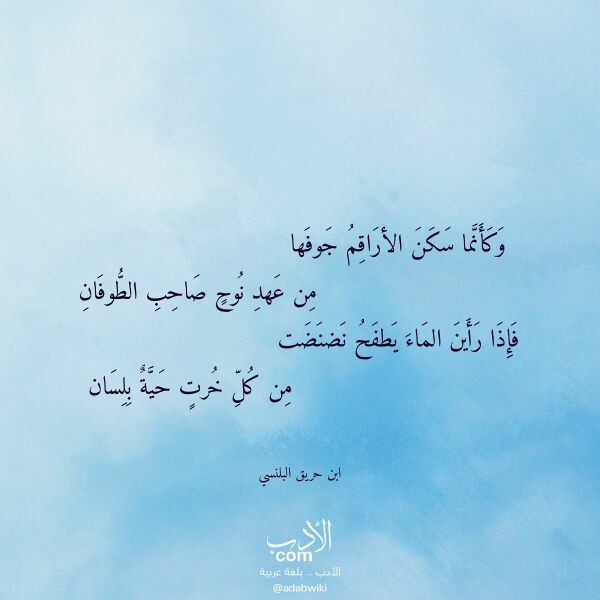 وَكَأَنَّما سَكَنَ الأرَاقِمُ جَوفَها
مِن عَهدِ نُوحٍ صَاحِبِ الطُّوفَانِ
فَإِذَا رَأَينَ المَاءَ يَطفَحُ نَضنَضَت
مِن كُلِّ خُرتٍ حَيَّةٌ بِلِسَان
ابن حريق البلنسي
الأدب
com
الأدب .. بلغة عربية
@adabwiki